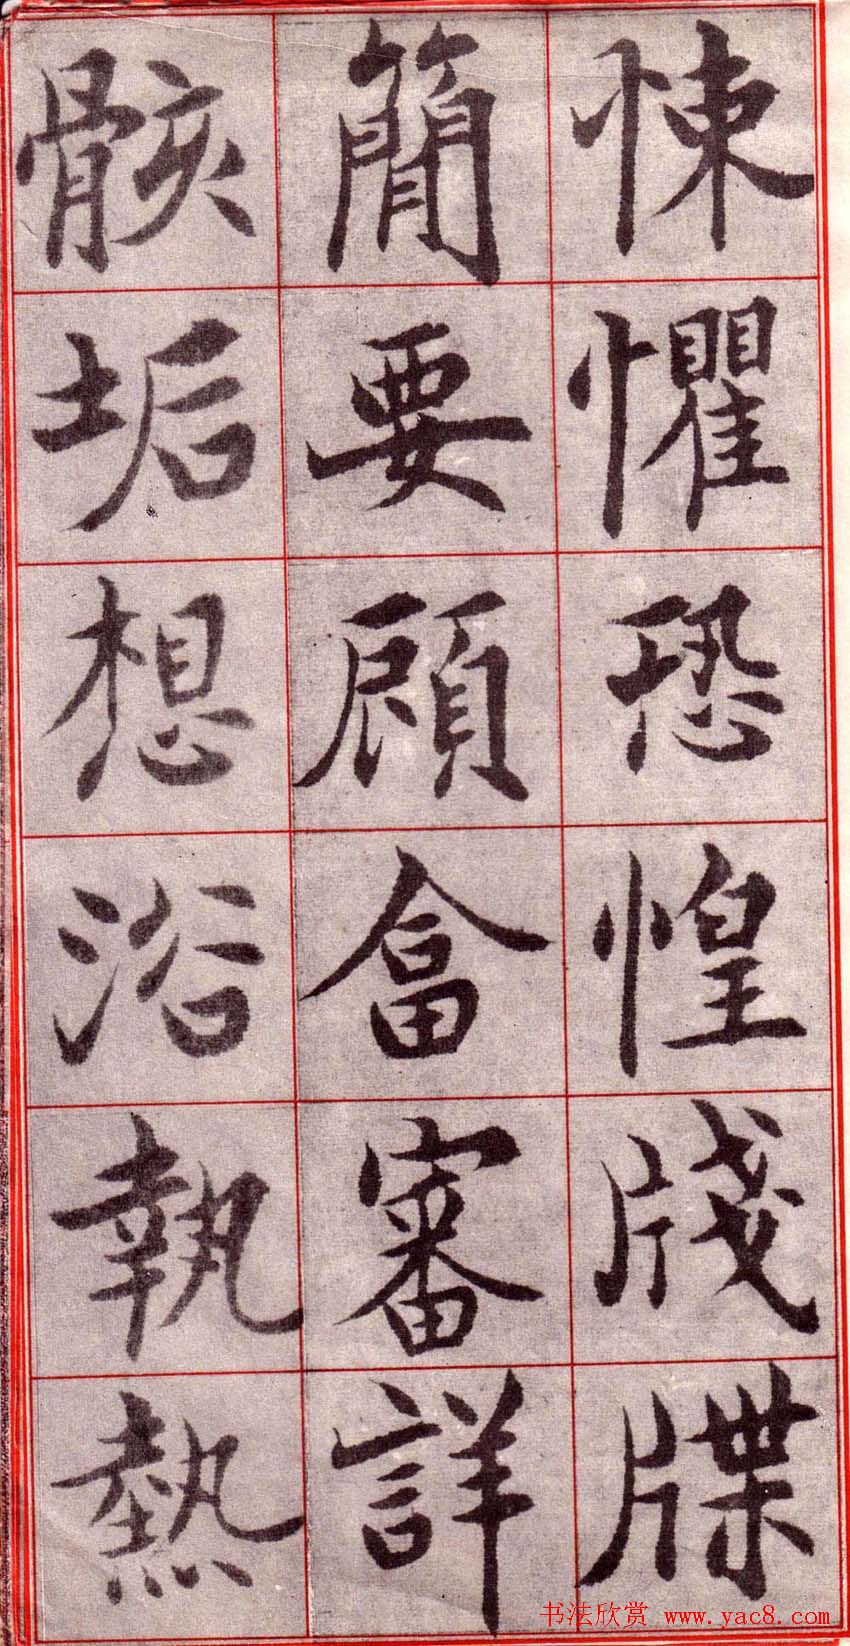 悚懼恐惶牋牒
簡要顧畣審詳
骸垢想浴執熱
书法欣赏 www.yac8.com